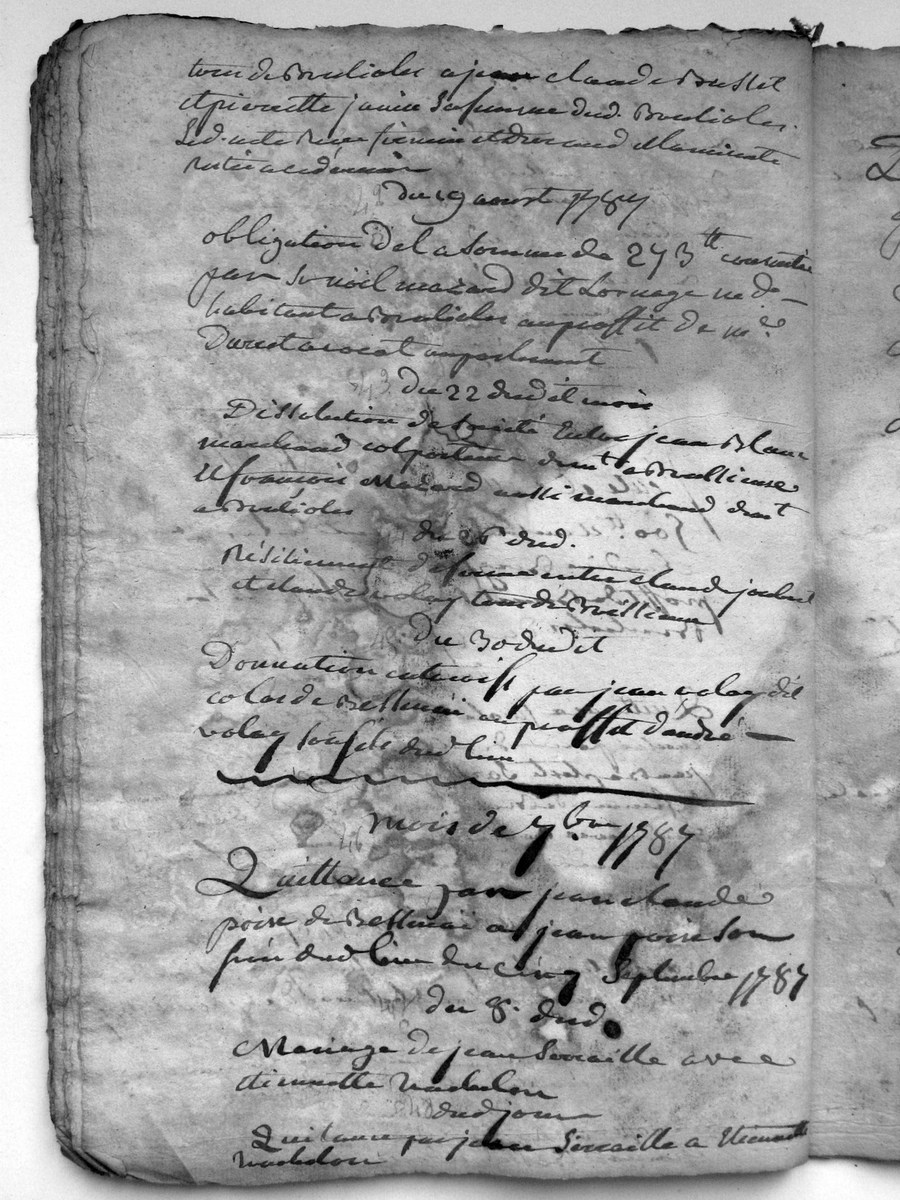 tous de Brulioles a jean claude Bussil
et pierrette janin sa femme dud. Brulioles.
led. acte reçu
du 19 aoust 1787
obligation de la somme de 273 tt consentie
par sr noël mazard dit Lornage ne de
habitant a Brulioles au proffit de me
Durest avocat au parlement
du 22 dudit mois
Dissolution de société Entre jean Blanc
marchand colporteur demt a Brullieuse
et françois Mazard aussi marchand demt
a Brulioles
du 26 dud.
Résiliement de ferme entre claude joubert
et claude volay tous de Brullieuse
du 30 dudit
Donnation entrevifs par jean volay dit
colas de Bessenai au proffit d'andré
volay son fils dud lieu
mois de 7bre 1787
Quittance par jean claude
poire de Bessenai a jean poire son
frere dud lieu du cinq Septembre 1787
du 8. dud
Mariage de jean Serraille avec
etiennette Nachelon
dud jour
Quitance par jean Serraille a Etiennette
Nachelon